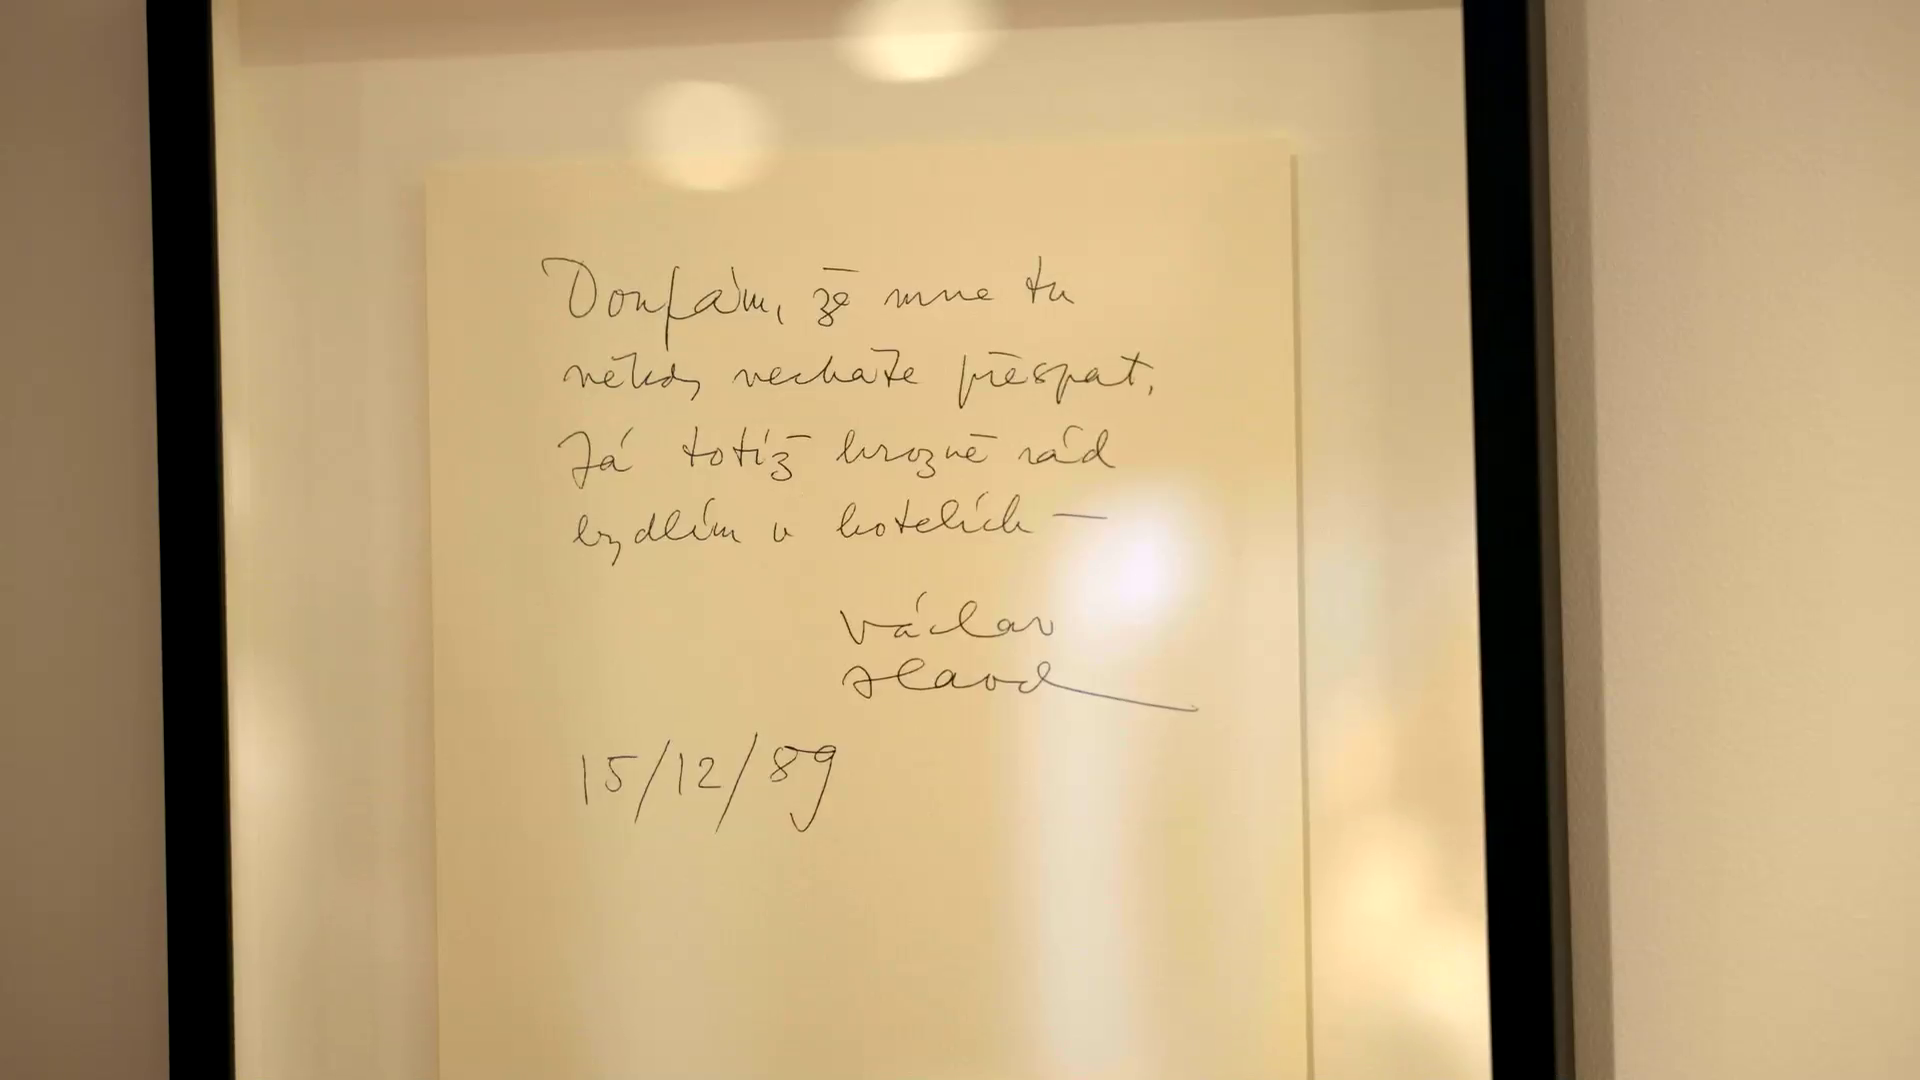 Doufám, že mne tu
někdy necháte přespat.
Já totiž hrozně rád
bydlím v hotelích —
Václav
Havel
15/12/89